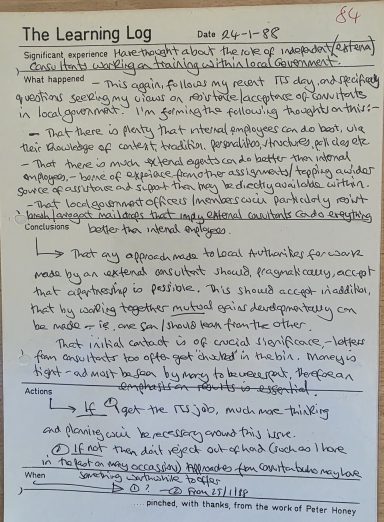 84
The Learning Log Date 24-1-88
Significant experience Have thought about the role of independent/external
Consultants working on training within local Government.
What happened - This again, follows my recent ITS day, and specifically
questions seeking my views on resistance/acceptance of consultants
in local government. I'm forming the following thoughts on this:-
- That there is plenty that internal employees can do best, via
their knowledge of context, tradition, personalities, structures, policies etc
- That there is much external agents can do better than internal
employees, - because of experience from other assignments/tapping a wider
source of assistance and support than may be directly available within.
- That local government officers/members will particularly resist
brash/arrogant maildrops that imply external consultants can do everything
better than internal employees.
Conclusions
That any approach made to Local Authorities for work
made by an external consultant should, pragmatically, accept
that a partnership is possible. This should accept in addition,
that by working together mutual gains developmentally can
be made - ie. one can/should learn from the other.
That initial contact is of crucial significance, - letters
from consultants too often get 'chucked' in the bin. Money is
tight - and must be seen by many to be well spent, therefore an
emphasis on results is essential.
Actions
If I get the ITS job, much more thinking
and planning will be necessary around this issue.
② If not then don't reject out of hand (such as I have
in the past on many occasions) approaches from consultants who may have
something worthwhile to offer
When
① ? - ② From 25/1/88
....pinched, with thanks, from the work of Peter Honey